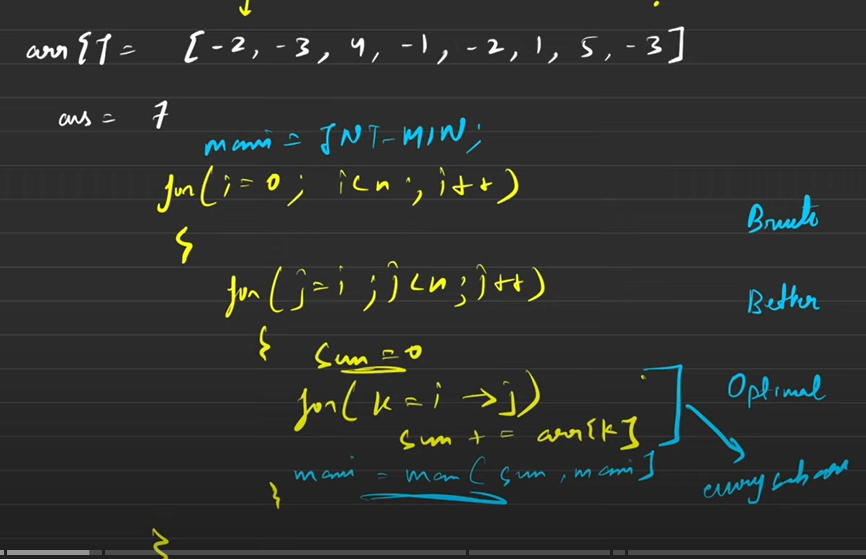 arr[] = [-2, -3, 4, -1, -2, 1, 5, -3]
ans = 7
maxi = INT-MIN;
for(i=0; i<n; i++)
{
for(j=i; j<n; j++)
{
sum=0
for(k=i→j)
sum += arr[k]
maxi = max(sum, maxi]
}
}
Brute
Better
Optimal
every subarr